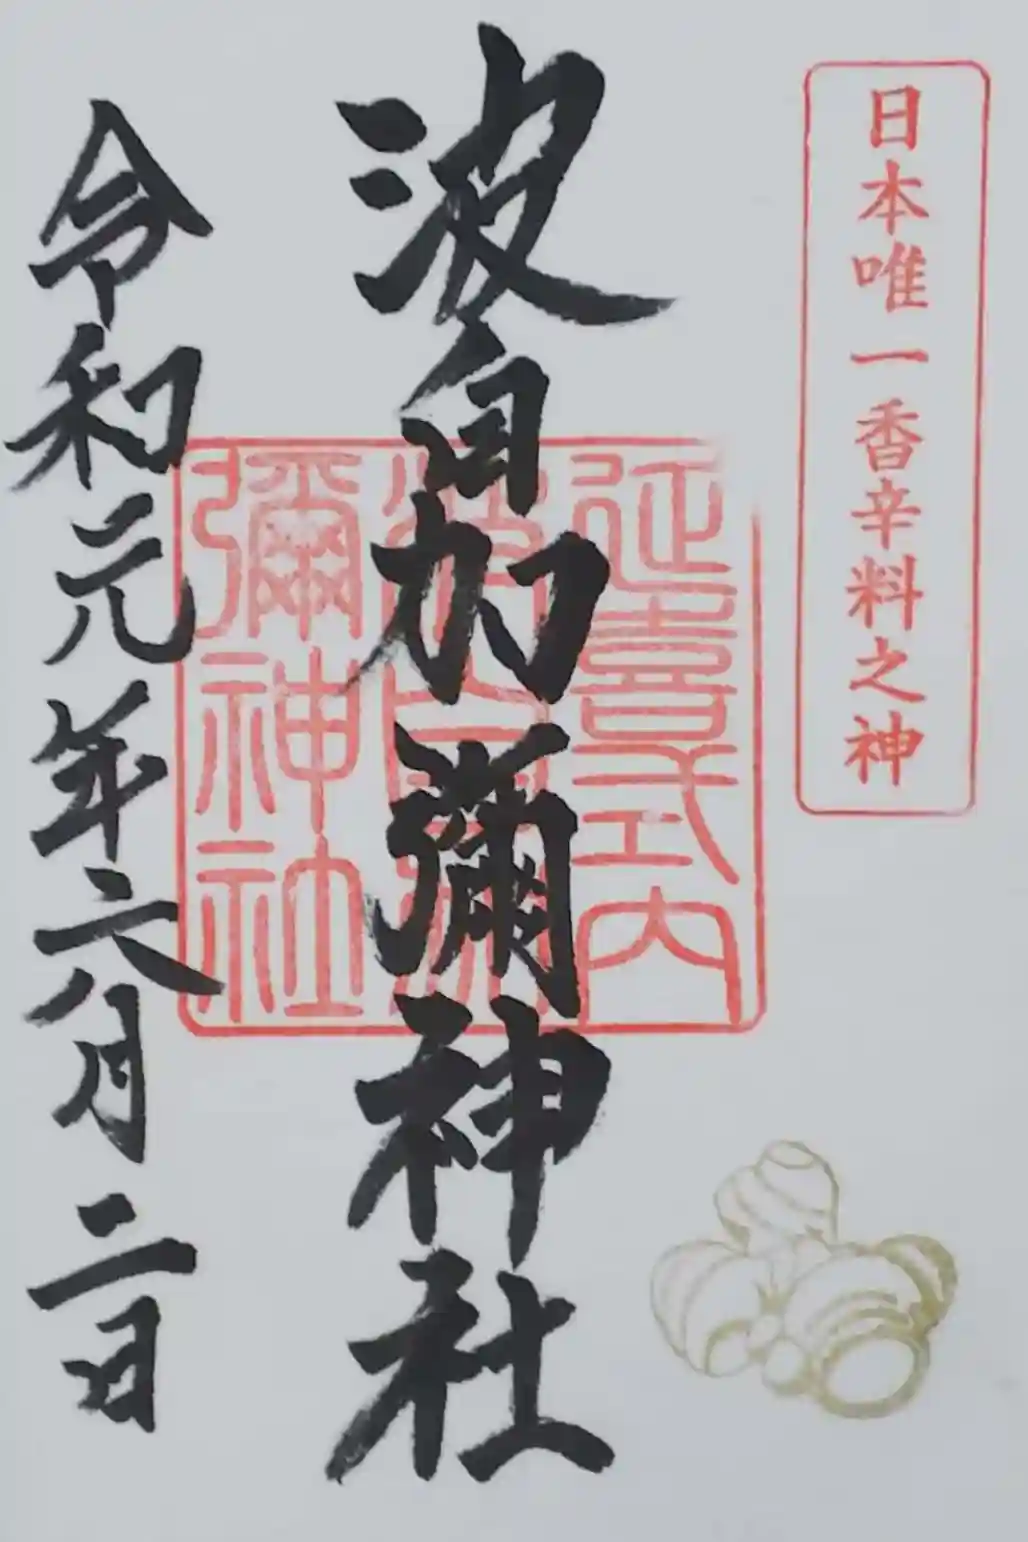 日本唯一香辛料之神
波自加彌神社
延喜式内
彌神社
令和元年六月二日